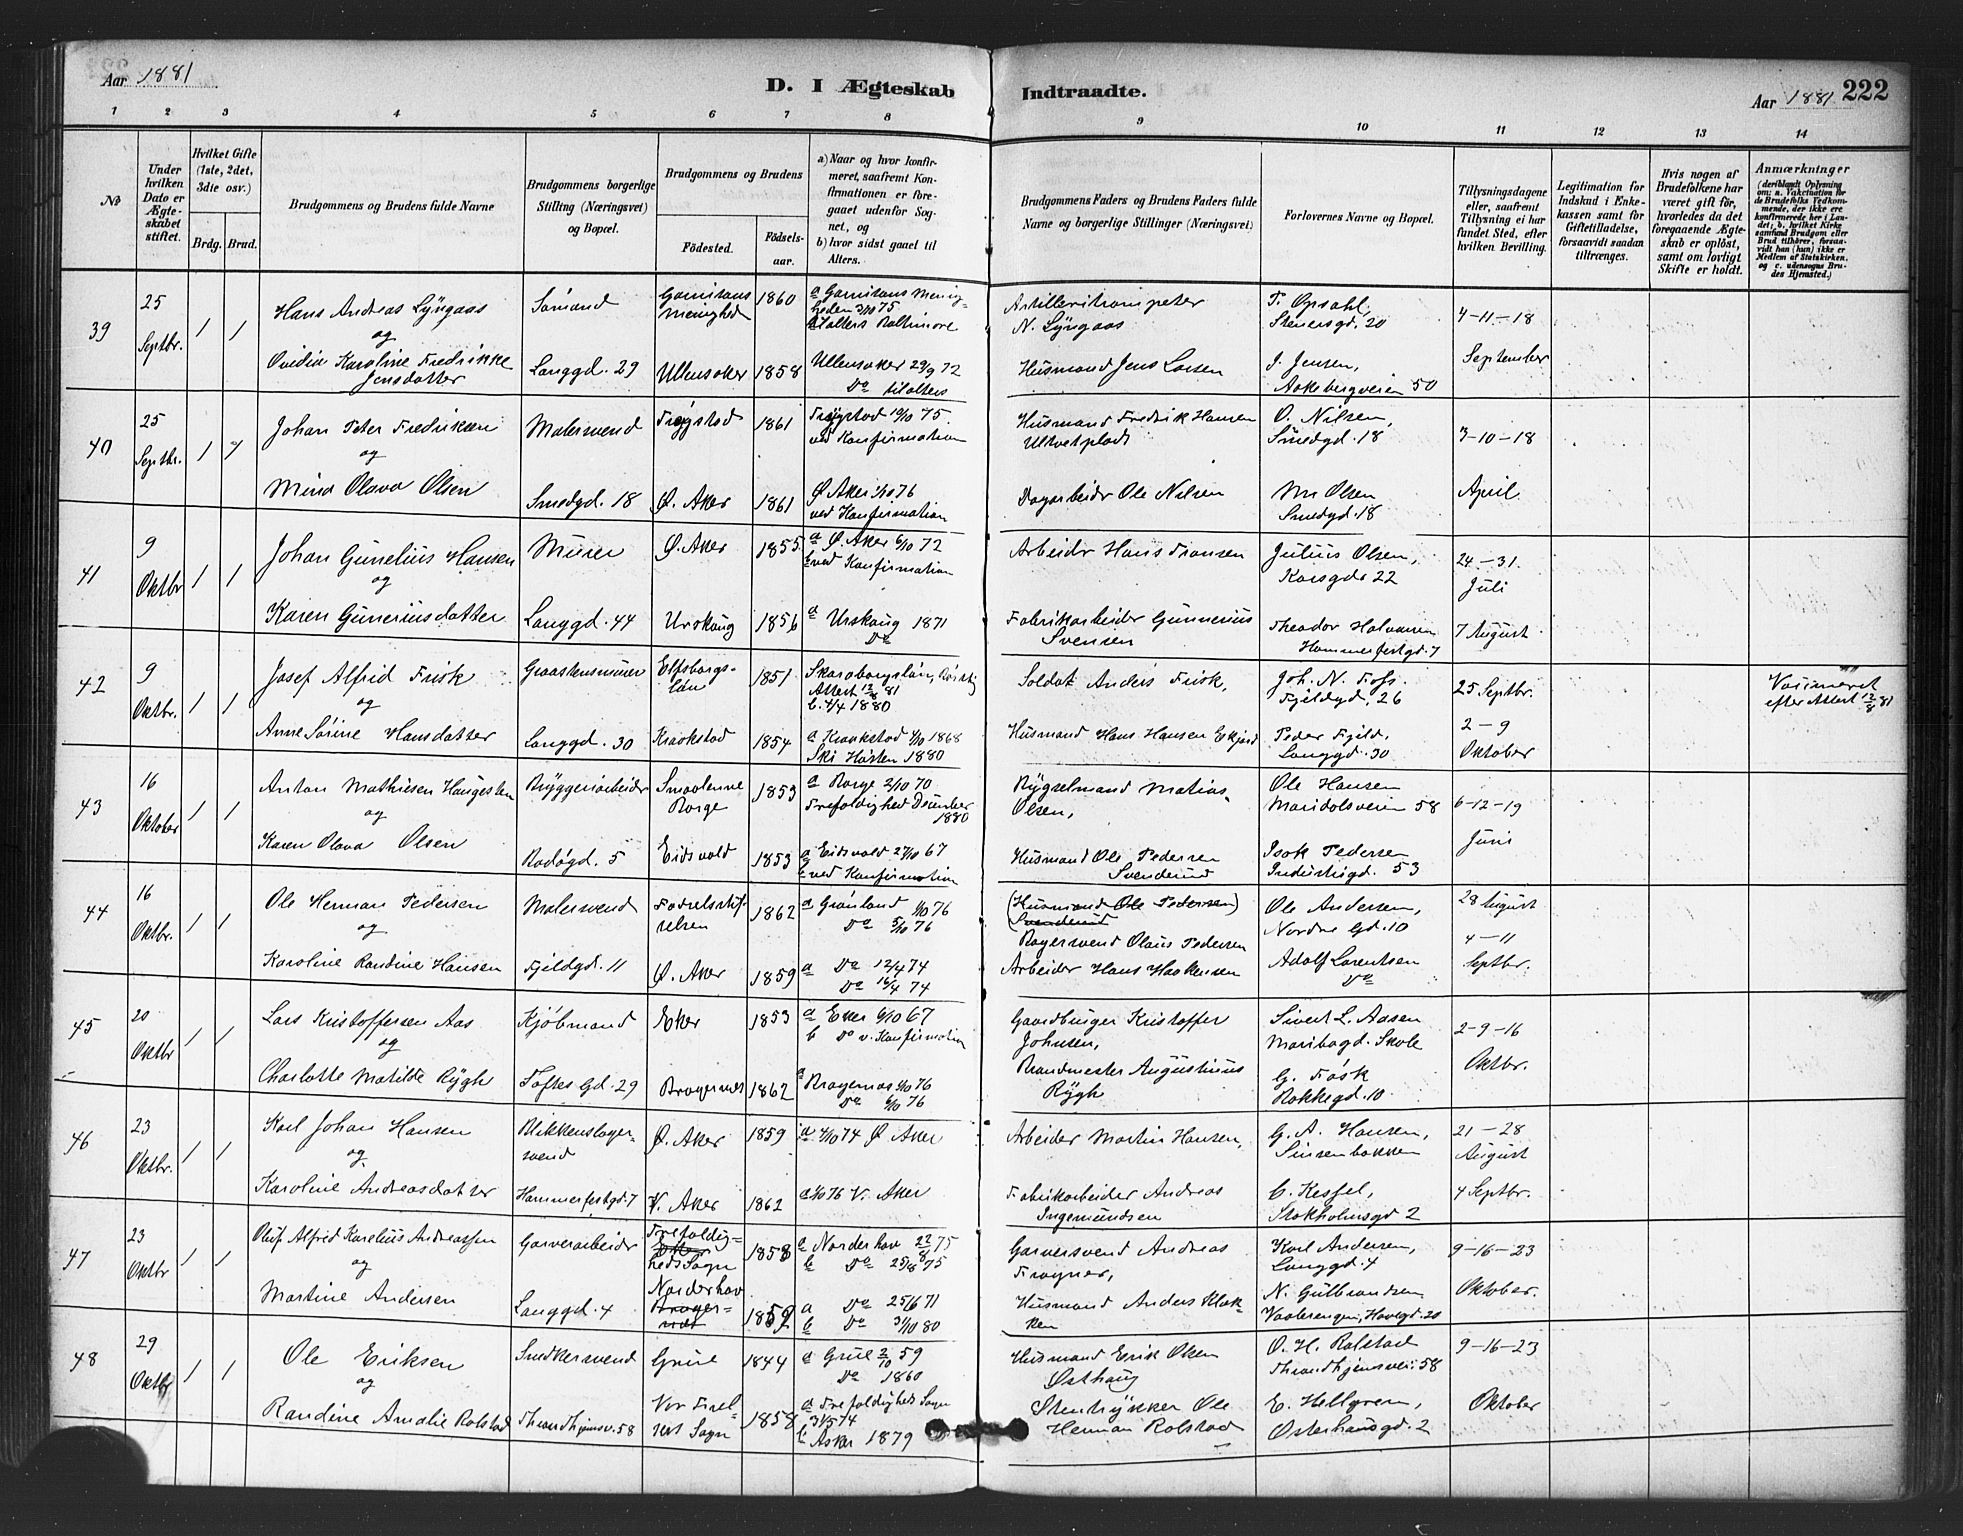 Aar 1881
D. I Ægteskab
Indtraadte.
Aar 1881
222
1 2 3 4 5 6 7 8 9 10 11 12 13 14
No
Under hvilken Dato er Ægteskabet stiftet.
Hvilket Gifte (1ste, 2det, 3die osv.)
Brdg. Brud.
Brudgommens og Brudens fulde Navne
Brudgommens borgerlige Stilling (Næringsvei) og Bopæl.
Brudgommens og Brudens
Födested.
Födsels-aar.
a) Naar og hvor konfir-
meret, saafremt Kon-
firmationen er fore-
gaaet udenfor Sog-
net, og
b) hvor sidst gaaet til
Alters.
Brudgommens Faders og Brudens Faders fulde
Navne og borgerlige Stillinger (Næringsvei)
Forlovernes Navne og Bopæl.
Tillysningsdagene
eller, saafremt
Tillysning ei har
fundet Sted, efter
hvilken Bevilling.
Legitimation for
Indskud i Enke-
kassen samt for
Giftetilladelse,
forsaavidt saadan
tiltrænges.
Hvis nogen af
Brudefolkene har
været gift för,
hvorledes da det
foregaaende Ægte-
skab er oplöst,
samt om lovligt
Skifte er holdt.
Anmærkninger
(deriblandt Oplysning
om: a. Vakcination for
de Brudefolks Vedkom-
mende, der ikke ere
konfirmerede her i Lan-
det; b. hvilket Kirke
samfund Brudgom eller
Brud tilhörer, forsaa-
vidt han (hun) ikke er
Medlem af Statskirken.
og c. udensogns Bru-
des Hjemsted.)
39 25 Septbr. 1 1
Hans Andreas Lyngaas
og
Ovidia Karoline Fredrikke
Jensdatter
Sømand
Langgd. 29
Garnisons Menighed 1860
Ullensaker 1858
a Garnisons Menig-
heden 3/10 75
Baltimore
Ullensaker 29/9 72
Do til alters
Artilleritrompeter
N. Lyngaas
Husmand Jens Larsen
T. Opsahl,
Stenersgd. 20
J. Jensen,
Aakebergveien 50
4-11-18
September
40 25 Septbr. 1 1
Johan Peter Fredriksen
og
Mina Olava Olsen
Malersvend
Smedgd. 18
Trøgstad 1861
Ø. Aker 1861
Trøgstad 10/10 75.
ved Konfirmation
Ø. Aker 1/10 76
ved Konfirmation
Husmand Fredrik Hansen
Dagarbeider Ole Nilsen
O. Nilsen,
Smedgd. 18
Olsen
Smedgd. 18
3-10-18
April
41 9 Oktbr 1 1
Johan Gunelius Hansen
og
Karen Guneriusdatter
Murer
Langgd. 44
Ø. Aker 1855.
Urskoug 1856
a Ø. Aker 6/10 72
b ved Konfirmation
a Urskoug 1871
Do
Arbeider Hans Fransen
Fabrikarbeider Gunnerius
Svensen
Julius Olsen,
Korsgd. 22
Theodor Halvorsen
Hammerfestgd. 7
24-31.
Juli
7 August
42 9 Oktbr. 1 1
Josef Alfrid Frisk
og
Anne Sørine Hansdatter
Graastensmurer
Langgd. 30
Elfsborgs-
län 1851
Kraakstad 1854
Skaraborgslän,
Attest 12/8 81
b. 4/4 1880
a Kraakstad 4/10 1868
Ski Høsten 1880
Soldat Anders Frisk,
Husmand Hans Hansen
Joh. N. Foss.
Fjeldgd. 26
Peder Fjeld,
Langgd. 30
25 Septbr.
2-9
Oktober
Vaccineret
efter Attest 12/8 81
43 16 Oktober 1 1
Anton Mathiesen Haugesten
og
Karen Olava Olsen
Bryggeriarbeider
Rodøgd. 5
Smaalenene
Borge 1853
Eidsvold 1853
a Borge 2/10 70
Trefoldighed December
1880
a Eidsvold 27/10 67
b ved Konfirmation
Rygselmand Matias
Olsen,
Husmand Ole Pedersen
Svenderud
Ole Hansen
Maridalsveien 58
Isak Pedersen
Industrigd. 53
6-12-19
Juni
44 16 Oktbr. 1 1
Ole Herman Pedersen
og
Karoline Randine Hansen
Malersvend
Fjeldgd. 11
Fødselsstif-
telsen 1862
Ø. Aker 1859
a Grønland 1/10 76
Do 5/10 76
a Do 12/4 74
Do 16/4 74
(Husmand Ole Pedersen)
Svenderud
Bagersvend Olaus Pedersen
Arbeider Hans Haakensen
Ole Andersen,
Nordre Gd. 10
Adolf Lorentsen
Do
28 August
4-11
Septbr.
45 20 Oktbr 1 1
Lars Kristoffersen Aas
og
Charlotte Matilde Rygh
Kjøbmand
Toftes Gd. 29
Eker 1853
Bragernes 1862
a Eker 6/10 67
b Do v. Konfirmation
a Bragernes 1/10 76
Do 6/10 76
Gaardbruger Kristoffer
Johnsen,
Brandmester Augustinius
Rygh
Sivert L. Aasen
Maribogd. Skole
G. Fosk
Rokkegd. 10
2-9-16
Oktbr.
46 23 Oktbr. 1 1
Karl Johan Hansen
og
Karoline Andreasdatter
Blikkenslager-
svend
Hammerfestgd. 7
Ø. Aker 1859
V. Aker 1862
a 4/10 74 Ø Aker
a 1/10 76 V. Aker
Arbeider Martin Hansen,
Fabrikarbeider Andreas
Ingemundsen
G. A. Hansen,
Sinsenbakken
C. Kessel,
Stokholmsgd 2
21-28
August
4 Septbr.
47 23 Oktbr 1 1
Oluf Alfred Karelius Andreassen
og
Martine Andersen
Garverarbeider
Langgd. 4
Trefoldig-
heds Sogn 1858
Norderhov
Brager-
næs 1859
a Norderhov 22/8 75
b Do 25/8 75
a Do 25/6 71
b Do 31/10 80
Garversvend Andreas
Frogner,
Husmand Anders Klok-
ken
Karl Andersen,
Langgd. 4
N. Gulbrandsen
Vaalerengen, Havegd. 20
9-16-23
Oktober.
48 29 Oktbr 1 1
Ole Eriksen
og
Randine Amalie Rolstad
Snedkersvend
Throndhjemsv. 58
Grue 1844
Vor Frel-
sers Sogn 1858
a Grue 2/10 59
Do 1860
a Trefoldigheds Sogn
3 1/5 74
b Asker 1879
Husmand Erik Olsen
Østhaug
Stentrykker Ole
Herman Rolstad
O. H. Rolstad
Throndhjemsvei 58
E. Hellgren,
Osterhausgd. 2
9-16-23
Oktober